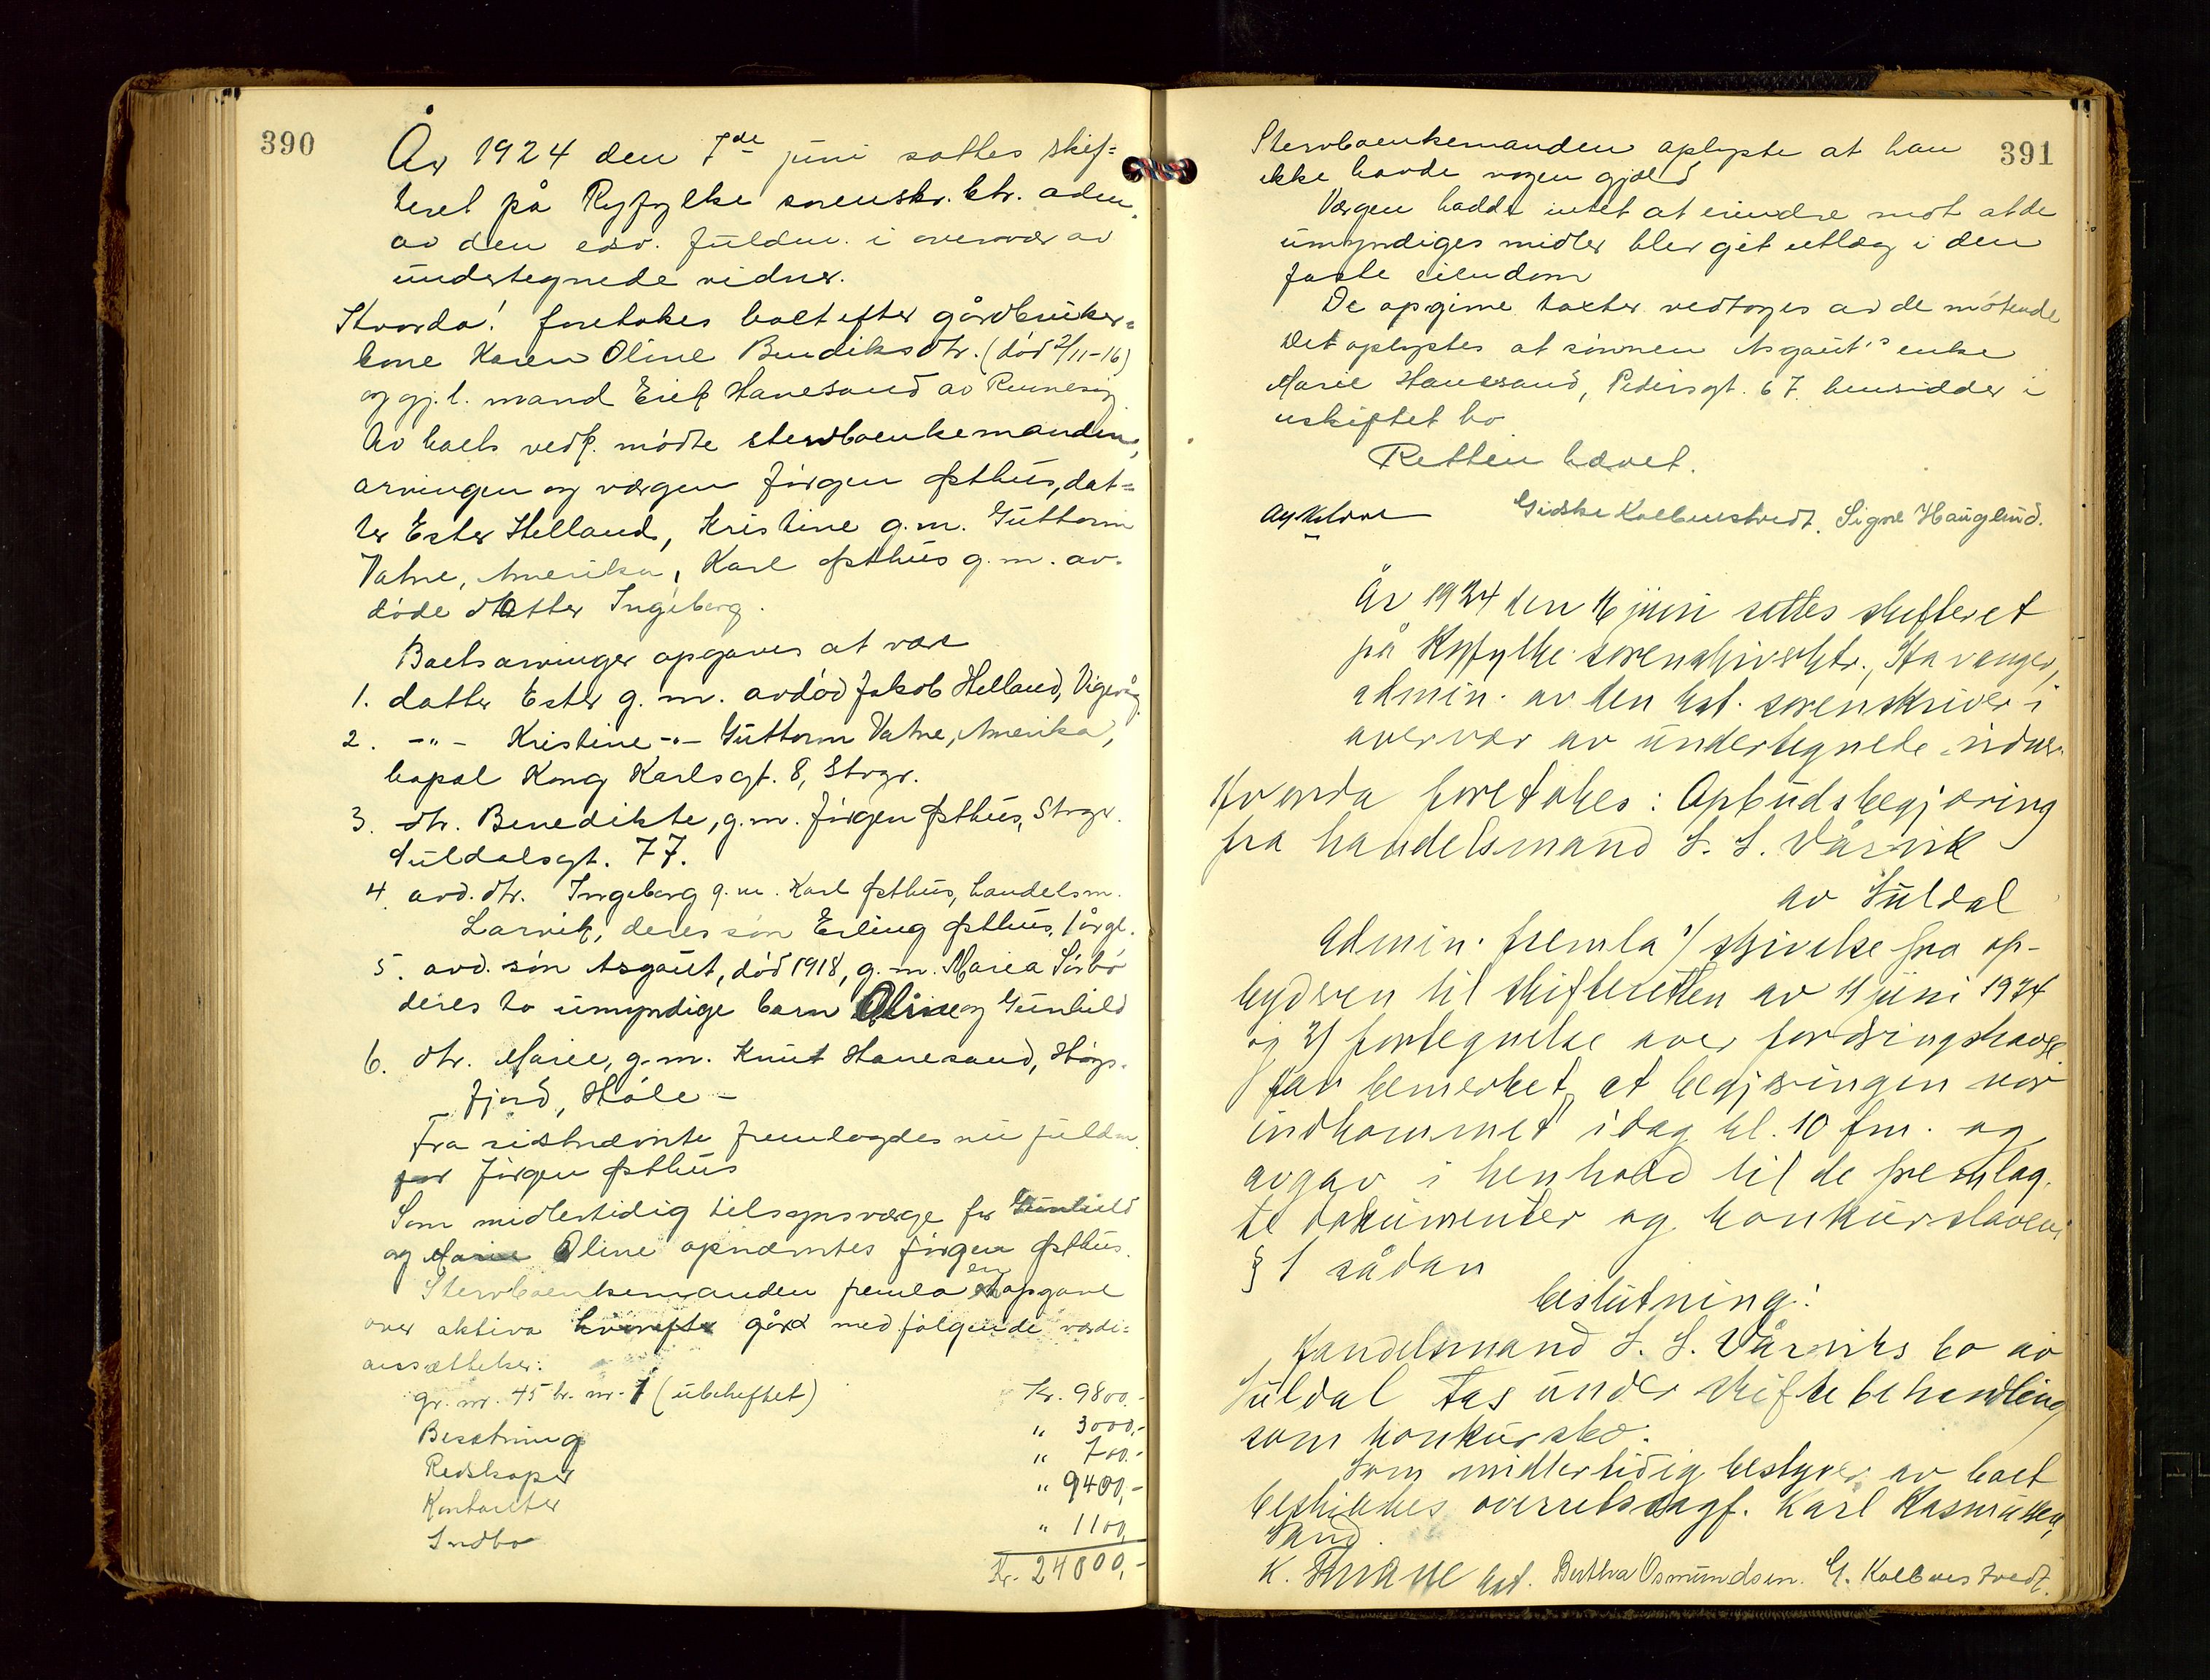 390
År 1924 den 7de juni sattes skif-
teret på Ryfylke sorenskr. ktr. adm.
av den edsv. fuldm. i overvær av
undertegnede vidner.
Hvorda! foretokes boet efter gårdbruker-
kone Karen Oline Bendiksdtr. (død 2/11-16)
og gj. l. mand Erik Hanesand av Rennesøy
Av boets vedk. mødte stervboenkemanden,
arvingen og værgen Jørgen Østhus, dat-
ter Ester Helland, Kristine g.m. Guttorm
Vatne, Amerika, Karl Østhus g.m. av-
døde datter Ingeborg.
Boets arvinger opgaves at være
1. datter Ester g.m. avdød Jakob Helland, Vigevåg
2. -"- Kristine -"- Guttorm Vatne, Amerika,
bopæl Kong Karlsgt. 8, Stvgr.
3. dtr. Benedikte, g.m. Jørgen Østhus, Stvgr.
Suldalsgt. 77.
4. avd. dtr. Ingeborg g.m. Karl Østhus, handelsm.
Larvik, deres søn Erling Østhus, 1 årgl.
5. avd. søn Asgaut, død 1918, g.m. Maria Sørbø
deres to umyndige barn Oline og Gunhild
6. dtr. Marie, g.m. Knut Hanesand, Høgs-
fjord, Høle -
Fra sistnævnte fremlagdes nu fuldm.
for Jørgen Østhus
Som midlertidig tilsynsværge for Gunhild
og Marie Oline opnævntes Jørgen Østhus.
Stervboenkemanden fremla en opgave
over aktiva hvorefter gård med følgende værdi-
ansættelser:
gr. nr. 45 br. nr. 1 (ubeheftet) Kr. 9800,-
Besætning " 3000,-
Redskaper " 700,-
Kontanter " 9400,-
Indbo " 1100,
Kr. 24000,-
391
Stervboenkemanden oplyste at han
ikke havde nogen gjæld
Værgen hadde intet at erindre mot at de
umyndiges midler blev git utlæg i den
faste eiendom
De opgivne takster vedtoges av de møtende
Det oplystes at sønnen Asgaut's enke
Marie Hanesand, Pedersgt. 67. hensidder i
uskiftet bo
Retten hævet.
Gidske Kolbenstvedt. Signe Hauglund.
År 1924 den 16 juni sattes skifteret
på Ryfylke sorenskriverktr., Stavanger,
admin. av den kst. sorenskriver i
overvær av undertegnede vidner.
Hvorda foretokes: Opbudsbegjæring
fra handelsmand S. S. Vårvik
av Suldal
Admin. fremla 1/ skrivelse fra op-
byderen til skifteretten av 11 juni 1924
og 2/ fortegnelse over fordringshave
fav bemerket, at begjæringen var
indkommet idag kl. 10 fm. og
avgav i henhold til de fremlag-
te dokumenter og konkurslovens
§ 1 sådan
beslutning:
Handelsmand S. S. Vårviks bo av
Suldal tas under skiftebehandling
som konkursbo.
Som midlertidig bestyrer av boet
beskikkes overretssagf. Karl Rasmussen,
Sand.
kst. Berthra Osmundsen. G. Kolbenstvedt.